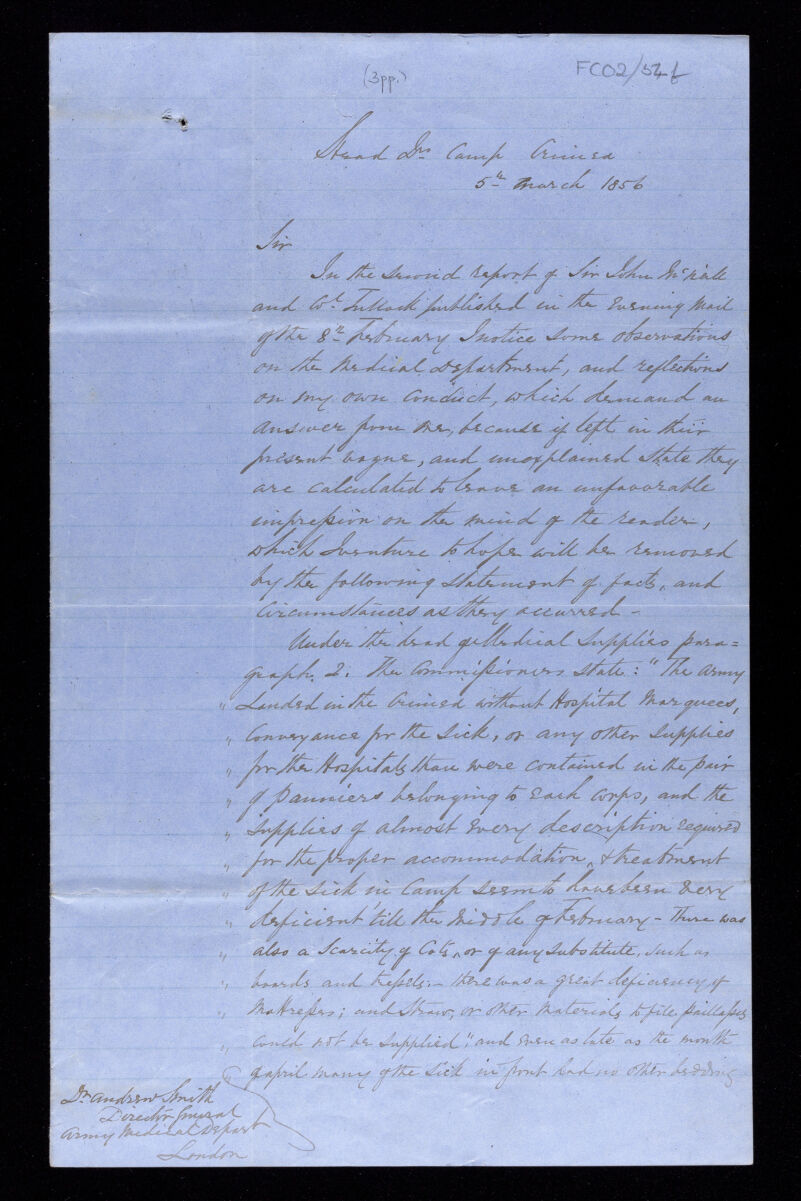 (3pp.)
FCO2/54 f
Head Qrs Camp Crimea
5th March 1856
Sir
In the second report of Sir John McNeill
and Col. Tulloch published in the Evening Mail
of the 8th February I notice some observations
on the Medical Department, and reflections
on my own conduct, which demand an
answer from me, because if left in their
present vague, and unexplained state they
are calculated to leave an unfavorable
impression on the mind of the reader,
which I venture to hope will be removed
by the following statement of facts, and
circumstances as they occurred -
Under the head of Medical Supplies para=
graph 2. the Commissioners state: "The Army
" Landed in the Crimea without Hospital Marquees,
" Conveyance for the Sick, or any other Supplies
" for the Hospitals than were contained in the pair
" of Panniers belonging to each corps, and the
" Supplies of almost every description required
" for the proper accommodation, & treatment
" of the Sick in Camp seem to have been very
" deficient 'till the middle of February - There was
" also a Scarcity of Cots, or of any substitute, such as
" boards and tressels. - there was a great deficiency of
" Mattresses; and Straw, or other materials to fill paillasses
" could not be supplied"; and even as late as the month
of April many of the Sick in front had no other bedding
Dr. Andrew Smith
Director General
Army Medical Depart
London